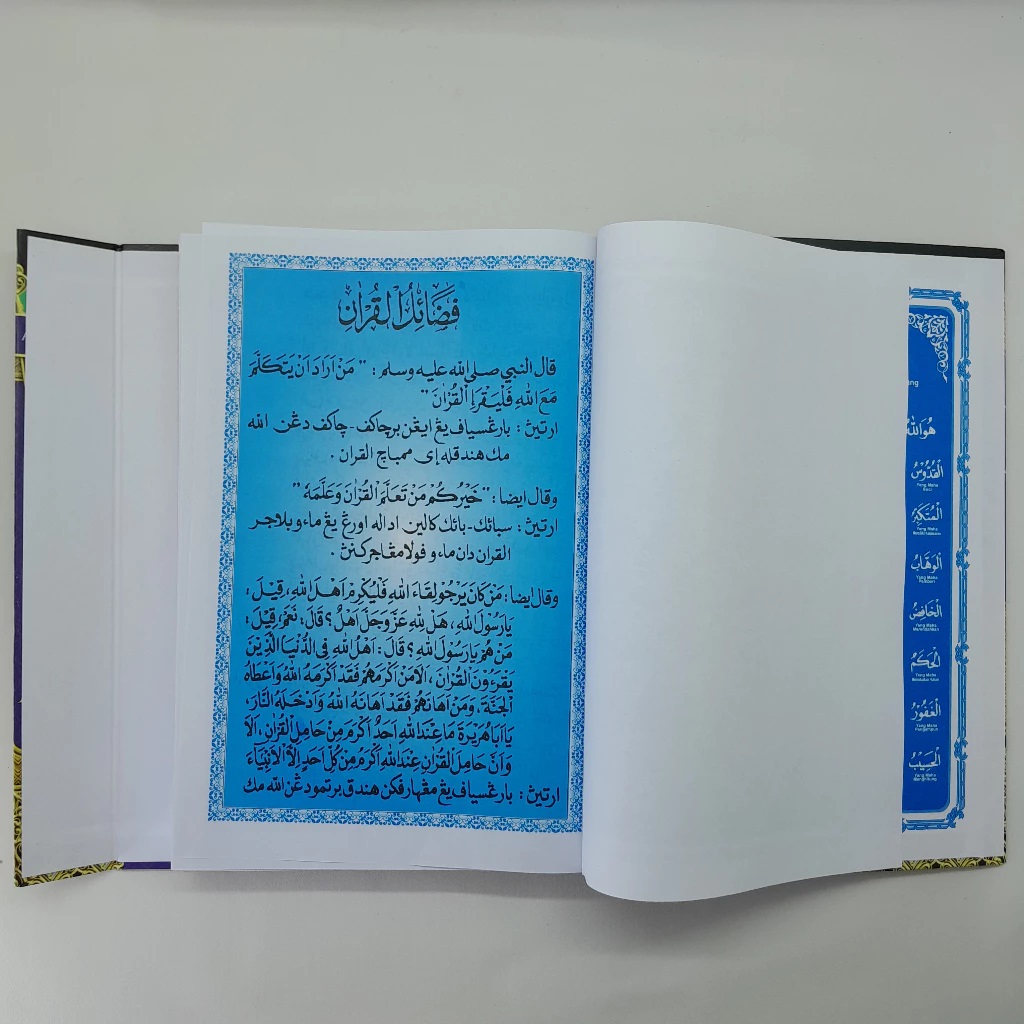 فَضَائِلُ الْقُرْاٰنِ
قال النبي صلى الله عليه وسلم : " مَنْ اَرَادَ اَنْ يَتَكَلَّمَ
مَعَ اللهِ فَلْيَقْرَاِ الْقُرْاٰنَ "
ارتيڽ : بارڠسياف يڠ ايڠن برچاكف - چاكف دڠن الله
مك هندقله إى ممباچ القران .
وقال ايضا : " خَيْرُكُمْ مَنْ تَعَلَّمَ الْقُرْاٰنَ وَعَلَّمَهُ "
ارتيڽ : سبائك - بائك كالين اداله اورڠ يڠ ماءو بلاجر
القران دان ماءو فولا مڠاجركنڽ .
وقال ايضا : مَنْ كَانَ يَرْجُو لِقَاءَ اللهِ فَلْيُكْرِمْ اَهْلَ اللهِ ، قِيْلَ :
يَارَسُوْلَ اللهِ ، هَلْ لِلّٰهِ عَزَّ وَجَلَّ اَهْلٌ ؟ قَالَ : نَعَمْ ، قِيْلَ :
مَنْ هُمْ يَارَسُوْلَ اللهِ ؟ قَالَ : اَهْلُ اللهِ فِى الدُّنْيَا الَّذِيْنَ
يَقْرَءُوْنَ الْقُرْاٰنَ ، اَلَا مَنْ اَكْرَمَهُمْ فَقَدْ اَكْرَمَهُ اللهُ وَاَعْطَاهُ
الْجَنَّةَ ، وَمَنْ اَهَانَهُمْ فَقَدْ اَهَانَهُ اللهُ وَاَدْخَلَهُ النَّارَ ،
يَااَبَاهُرَيْرَةَ مَا عِنْدَ اللهِ اَحَدٌ اَكْرَمَ مِنْ حَامِلِ الْقُرْاٰنِ ، اَلَا
وَاَنَّ حَامِلَ الْقُرْاٰنِ عِنْدَ اللهِ اَكْرَمُ مِنْ كُلِّ اَحَدٍ اِلَّا الْاَنْبِيَاءَ
ارتيڽ : بارڠسياف يڠ مڠهارفكن هندق برتمو دڠن الله مك
هُوَ اللهُ
الْقُدُّوْسُ
Yang Maha
Suci
الْمُتَكَبِّرُ
Yang Maha
الْوَهَّابُ
Yang Maha
Pemberi
الْخَافِضُ
Yang Maha
Merendahkan
الْحَكَمُ
Yang Maha
الْغَفُوْرُ
Yang Maha
Pengampun
الْحَسِيْبُ
Yang Maha
Menghitung